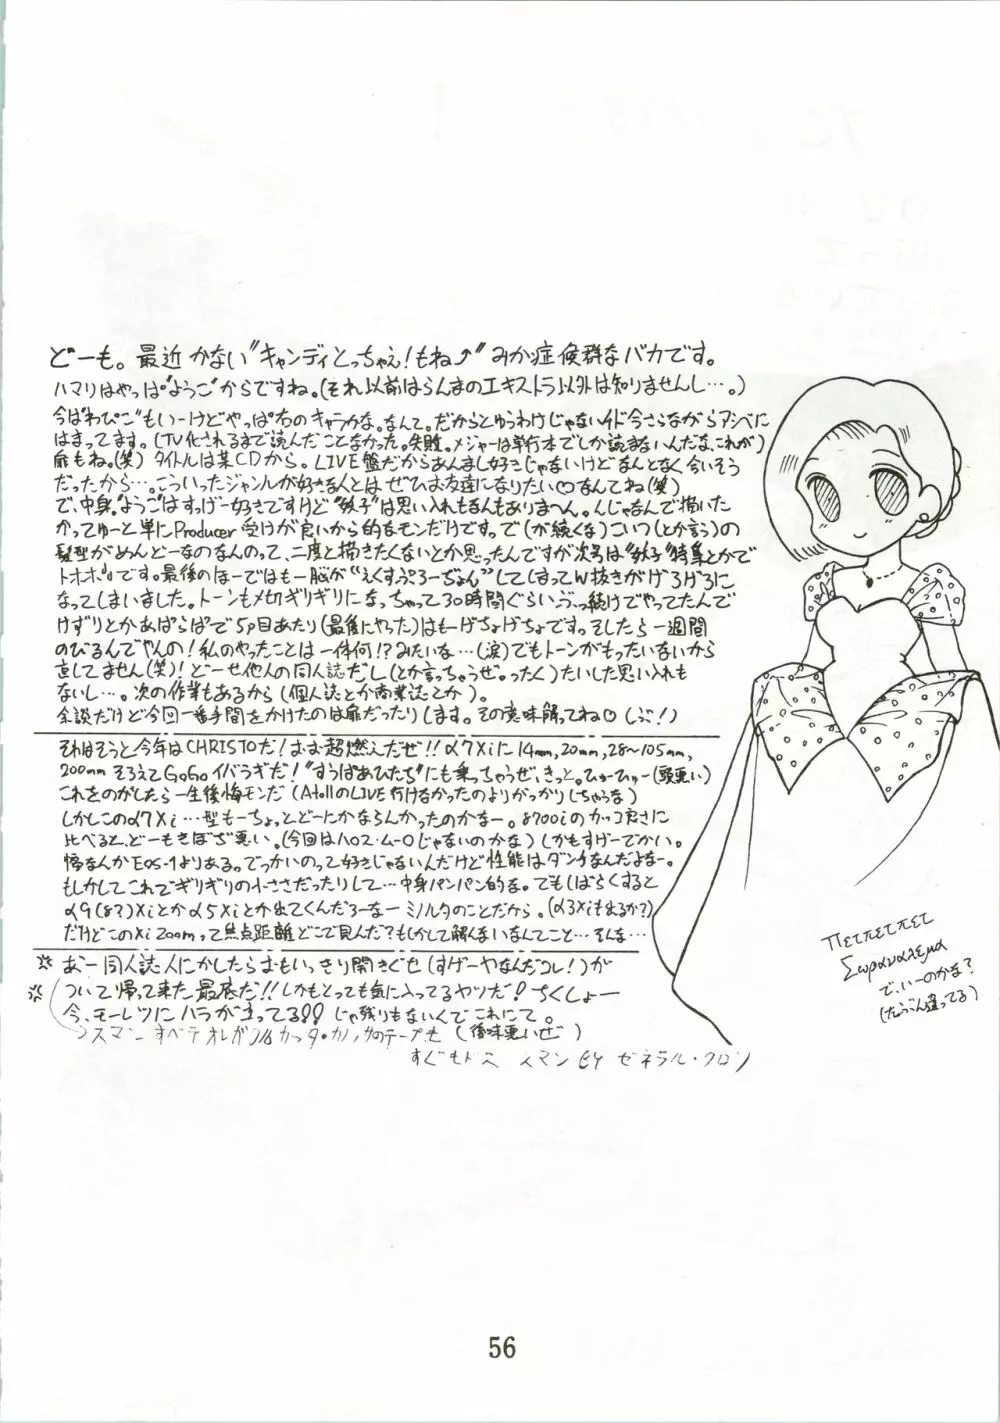 どーも。最近かない"キャンディとっちゃえ!もね⤴"みか症候群なバカです。
ハマリはやっぱ"ようこ"からですね。(それ以前はらんまのエキストラ以外は知りませんし…。)
今は"わぴこ"もいーけどやっぱ右のキャラかな。なんて。だからとゆうわけじゃないけど今さらながらアシベに
はまってます。(TV化されるまで読んだことなかった。失敗。メジャーは単行本でしか読まないんだな、これが)
扉もね。(笑) タイトルは某CDから。LIVE盤だからあんまし好きじゃないけどなんとなく合いそう
だったから…。こういったジャンルが好きな人とはぜひお友達になりたい♡なんてね(笑)
で、中身。"ようこ"はすげー好きですけど"妖子"は思い入れもなんもありまへん。んじゃなんで描いた
かってゆーと単にProducer受けが良いから的なモンだけですっ。で(が続くな)こいつ(とか言う)の
髪型がめんどーなのなんのって、二度と描きたくないとか思ったんですが次号は"妖子"特集とかで
トオホホです。最後のほーではもー脳が"えくすぷろーぢょん"してしまってW抜きがげろげろに
なってしまいました。トーンもメ切ギリギリになっちゃって30時間ぐらいぶっ続けでやってたんで
けずりとかあぱらぱで5p目あたり(最後にやった)はもーげちょげちょですっ。そしたら一週間
のびるんでやんの!私のやったことは一体何!?みたいな…(涙)でもトーンがもったいないから
直してません(笑)!どーせ他人の同人誌だし(とか言っちゃうぜ。ったく)たいした思い入れも
ないし…。次の作業もあるから(個人誌とか商業誌とか)。
余談だけど今回一番手間をかけたのは扉だったりします。その意味解ってね♡(ぶ!)
それはそうと今年はCHRISTOだ!おお超燃えだぜ!!α7Xiに14mm,20mm,28~105mm,
200mmそろえてGoGoイバラギだ!"すうぱあひたち"にも乗っちゃうぜ、きっと。ひゅーひゅー(頭悪い)
これをのがしたら一生後悔モンだ(AtollのLIVE行けなかったのよりがっかりしちゃうな)
しかしこのα7Xi…型もーちょっとどーにかならんかったのかなー。8700iのカッコ良さに
比べると、どーもさぼぢ悪い。(今回はハロス・ムーロじゃないのかな)しかもすげーでかい。
幅なんかEOS-1よりある。でっかいのって好きじゃないんだけど性能はダンチなんだよなー。
もしかしてこれでギリギリの小ささだったりして…中身パンパン的な。でもしばらくすると
α9(8?)Xiとかα5Xiとか出てくんだろーなーミノルタのことだから。(α3Xiも出るか?)
だけどこのXi Zoomって焦点距離どこで見んだ?もしかして解んないなんてこと…そんな…
あー同人誌人にかしたらおもいっきり開きぐせ(すげーやなんだコレ!)が
ついて帰って来た最底だ!!しかもとっても気に入ってるヤツだ!ちくしょー
今、モーレツにハラが立ってる!!じゃ残りもないんでこれにて。
スマン すべテオレガ
(後味悪いぜ)
すぐもドス スマン BY ゼネラル・クロン
Πετπετπετ
Σωραναλεμα
で、いーのかな?
(たぶん違ってる)
56